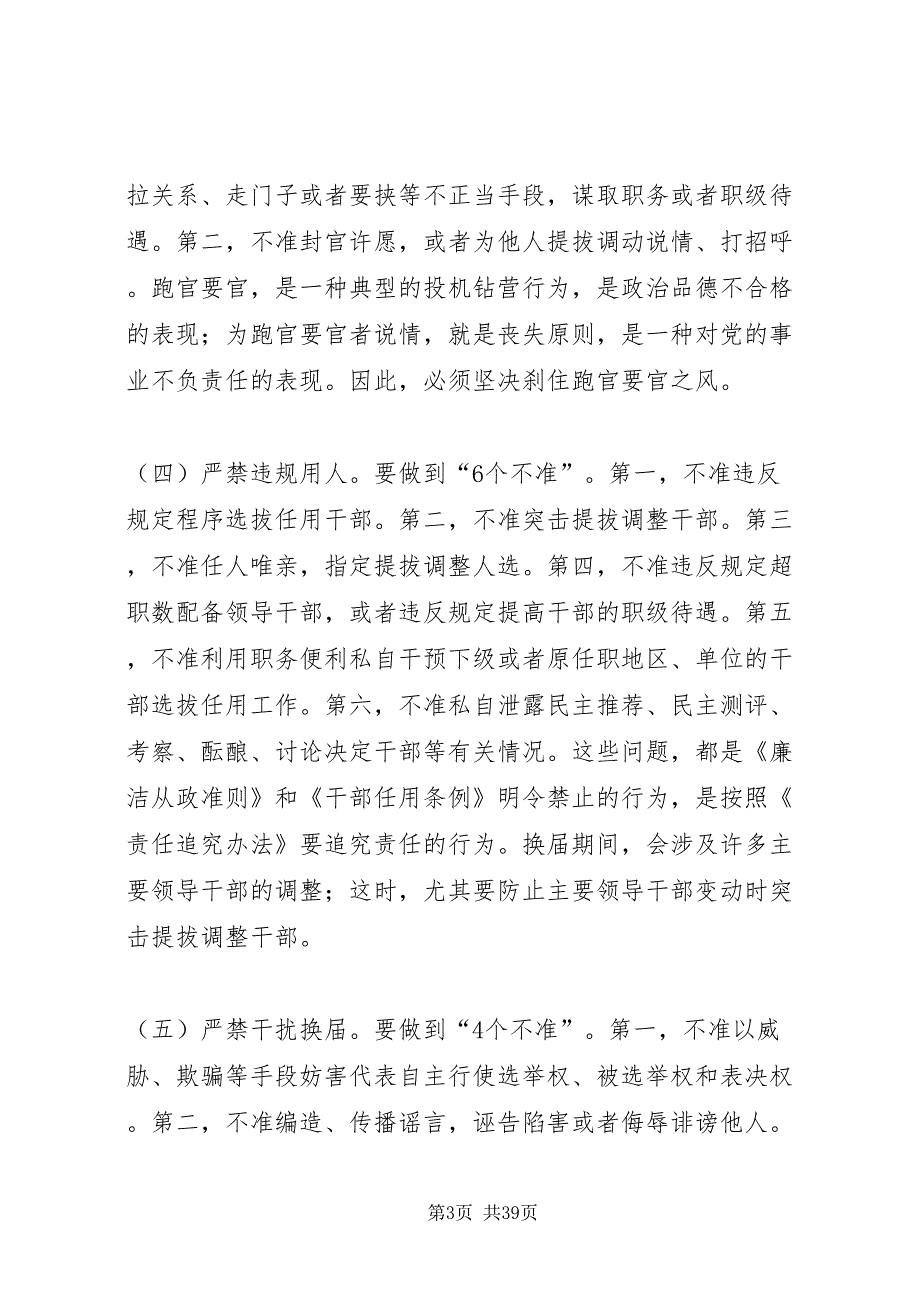 拉关系、走门子或者要挟等不正当手段，谋取职务或者职级待
遇。第二，不准封官许愿，或者为他人提拔调动说情、打招呼
。跑官要官，是一种典型的投机钻营行为，是政治品德不合格
的表现；为跑官要官者说情，就是丧失原则，是一种对党的事
业不负责任的表现。因此，必须坚决刹住跑官要官之风。
（四）严禁违规用人。要做到“6个不准”。第一，不准违反
规定程序选拔任用干部。第二，不准突击提拔调整干部。第三
，不准任人唯亲，指定提拔调整人选。第四，不准违反规定超
职数配备领导干部，或者违反规定提高干部的职级待遇。第五
，不准利用职务便利私自干预下级或者原任职地区、单位的干
部选拔任用工作。第六，不准私自泄露民主推荐、民主测评、
考察、酝酿、讨论决定干部等有关情况。这些问题，都是《廉
洁从政准则》和《干部任用条例》明令禁止的行为，是按照《
责任追究办法》要追究责任的行为。换届期间，会涉及许多主
要领导干部的调整；这时，尤其要防止主要领导干部变动时突
击提拔调整干部。
（五）严禁干扰换届。要做到“4个不准”。第一，不准以威
胁、欺骗等手段妨害代表自主行使选举权、被选举权和表决权
。第二，不准编造、传播谣言，诬告陷害或者侮辱诽谤他人。
第3页 共39页